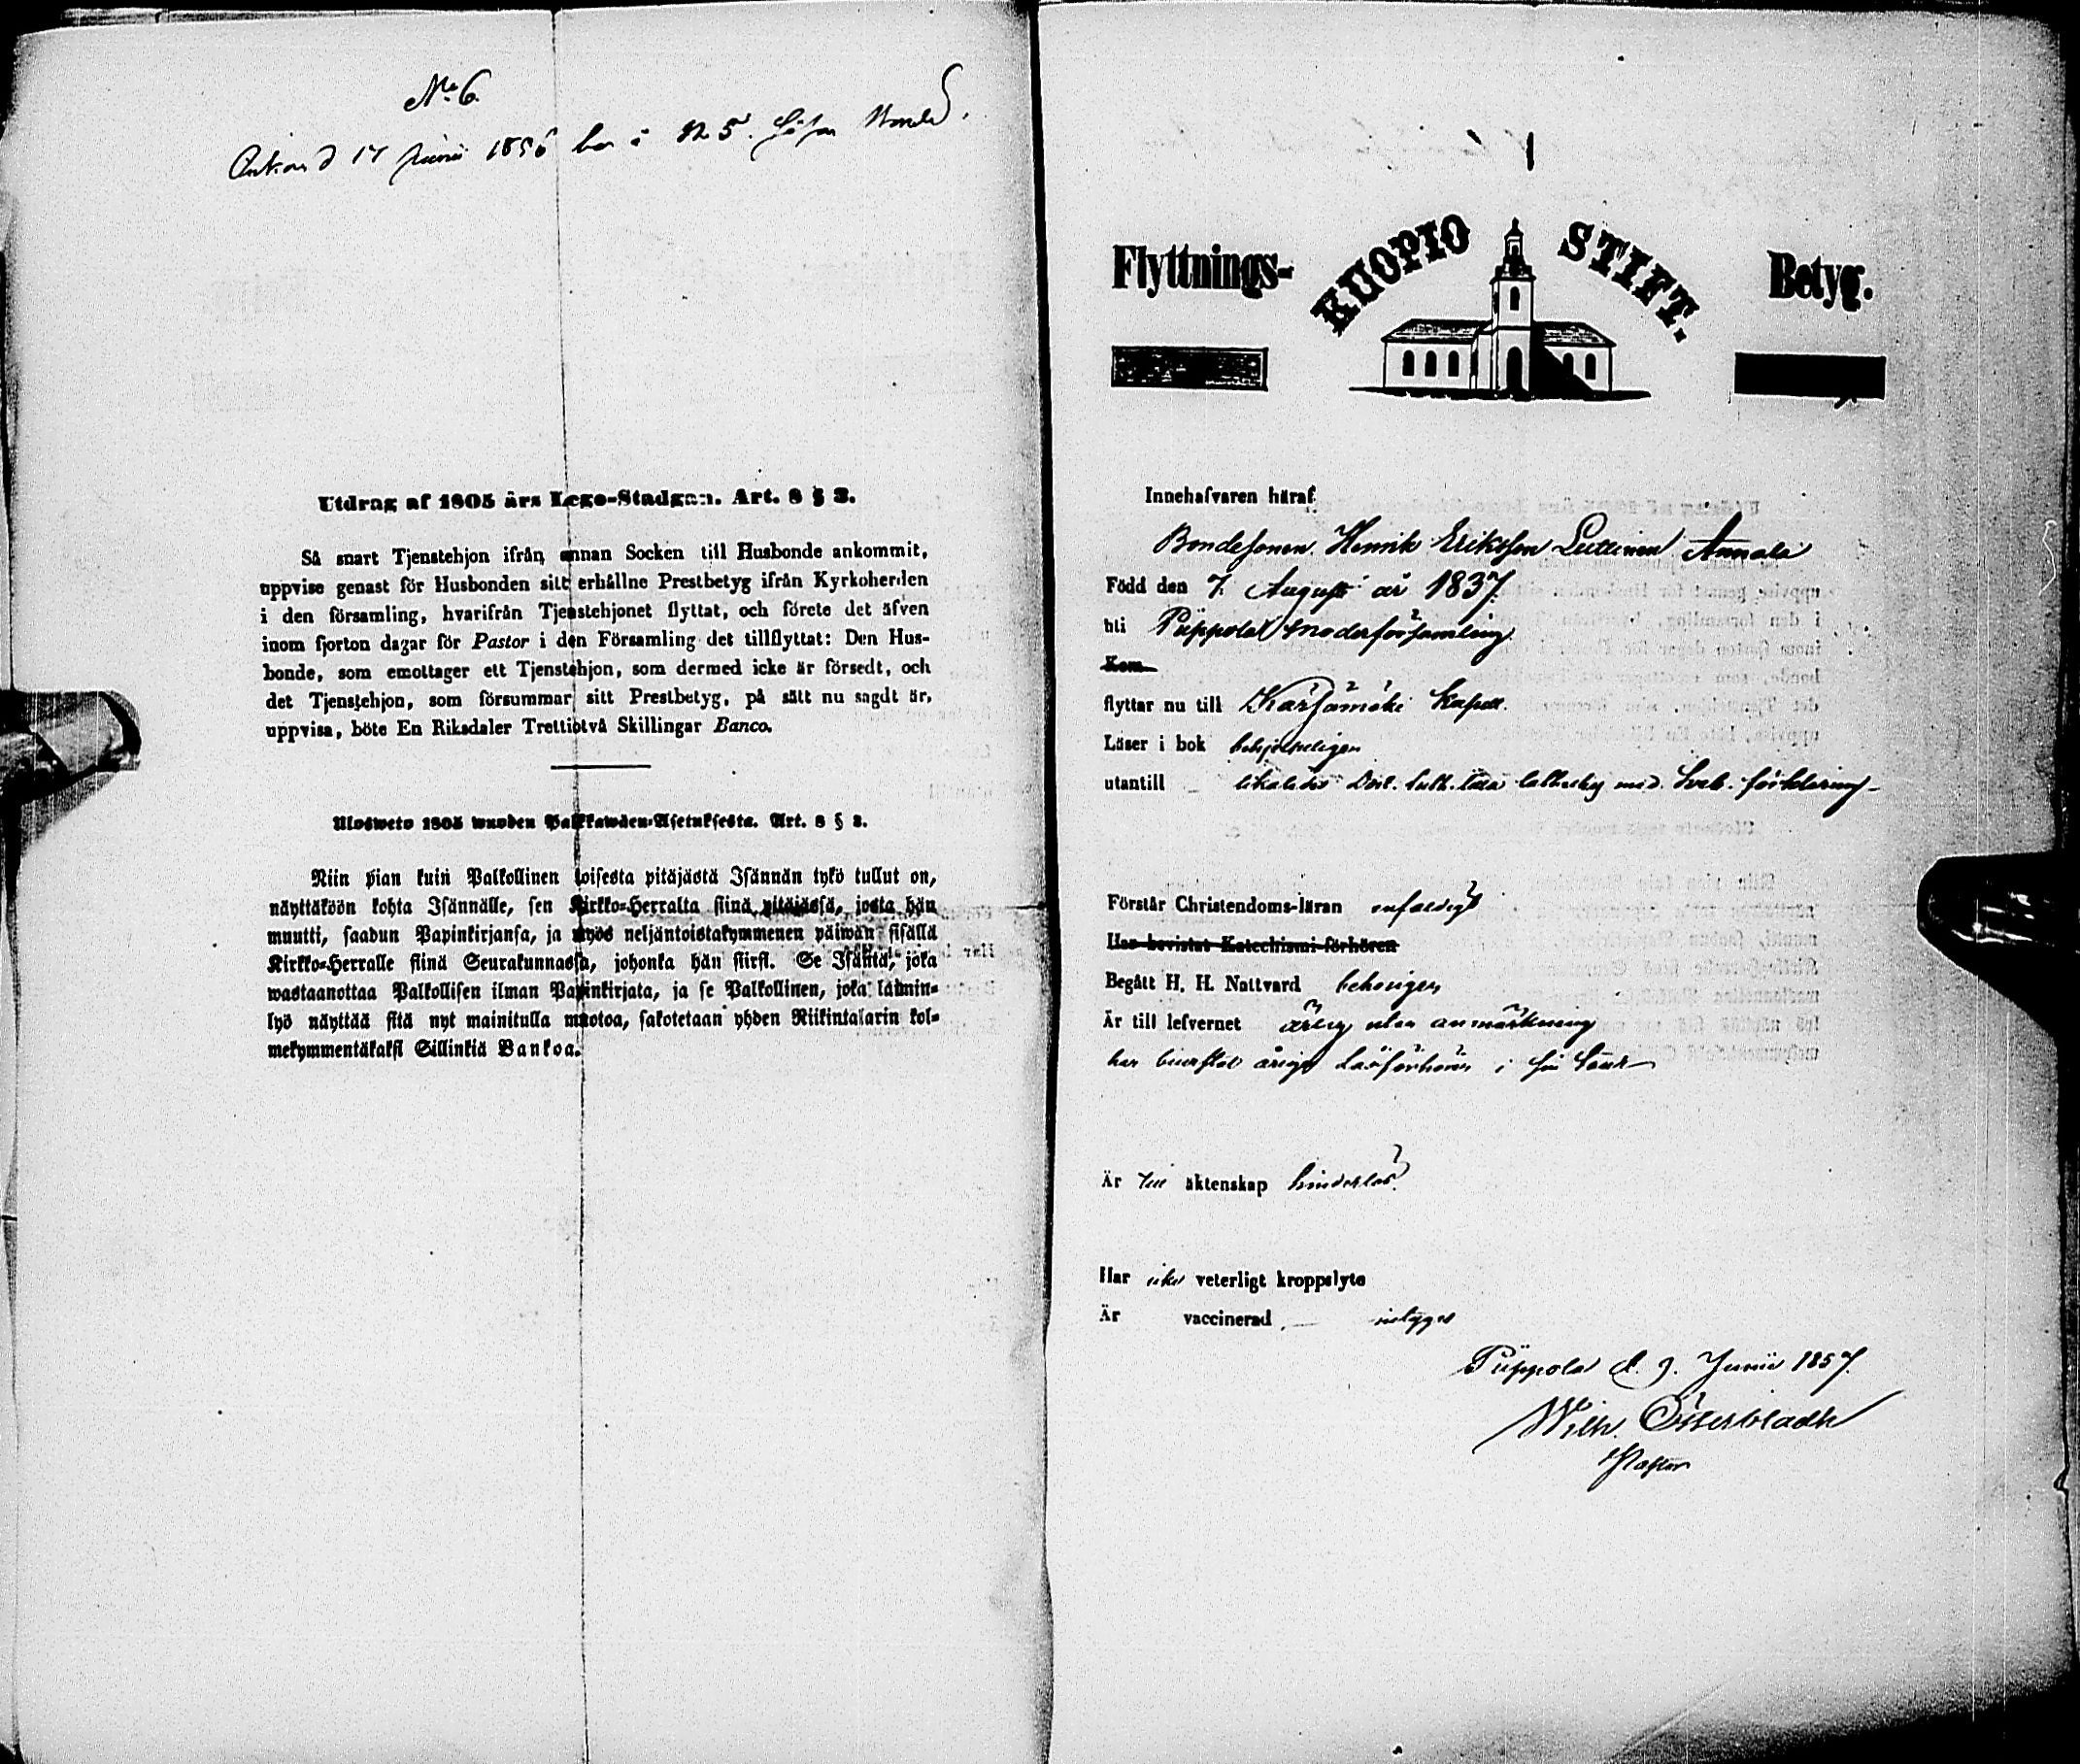 No 6.
d 17 Junii 1856 N 5.
Utdrag af 1805 års Lego-Stadgan. Art. 8 § 3.
Så snart Tjenstehjon ifrån annan Socken till Husbonde ankommit,
uppvise genast för Husbonden sitt erhållne Prestbetyg ifrån Kyrkoherden
i den församling, hvarifrån Tjenstehjonet flyttat, och förete det äfven
inom fjorton dagar för Pastor i den Församling det tillflyttat: Den Hus-
bonde, som emottager ett Tjenstehjon, som dermed icke är försedt, och
det Tjenstehjon, som försummar sitt Prestbetyg, på sätt nu sagdt är,
uppvisa, böte En Riksdaler Trettiotvå Skillingar Banco.
Ulosweto 1805 wuoden Palkkawäen-Asetuksesta. Art. 8 § 3.
Niin pian kuin Palkollinen toisesta pitäjästä Isännän tykö tullut on,
näyttäköön kohta Isännälle, sen Kirkko-Herralta siinä pitäjässä, josta hän
muutti, saadun Papinkirjansa, ja myös neljäntoistakymmenen päiwän sisällä
Kirkko-Herralle siinä Seurakunnassa, johonka hän siirsi. Se Isäntä, joka
wastaanottaa Palkollisen ilman Papinkirjata, ja se Palkollinen, joka laimin-
lyö näyttää sitä nyt mainitulla muotoa, sakotetaan yhden Riikintalarin kol-
mekymmentäkaksi Sillinkiä Bankoa.
Flyttnings- KUOPIO STIFT. Betyg.
Innehafvaren häraf
Bondesonen Henrik Eriksson Leittinen Annala
Född den 7. Augusti år 1837.
uti Piippola moderförsamling
Kom
flyttar nu till Kärsämäki Kapell.
Läser i bok behjelpeligen
utantill likaledes Luth. lilla med Sveb. förklaring
Förstår Christendoms-läran enfaldigt
Har bevistat Katechismi-förhören
Begått H. H. Nattvard behörigen
Är till lefvernet ärlig utan anmärkning
har bevistat årliga Läsförhören i
Är till äktenskap hinderlös
Har icke veterligt kroppslyte
Är vaccinerad intygas
Piippola d. 9. Junii 1857.
Wilh. Österbladh
Pastor